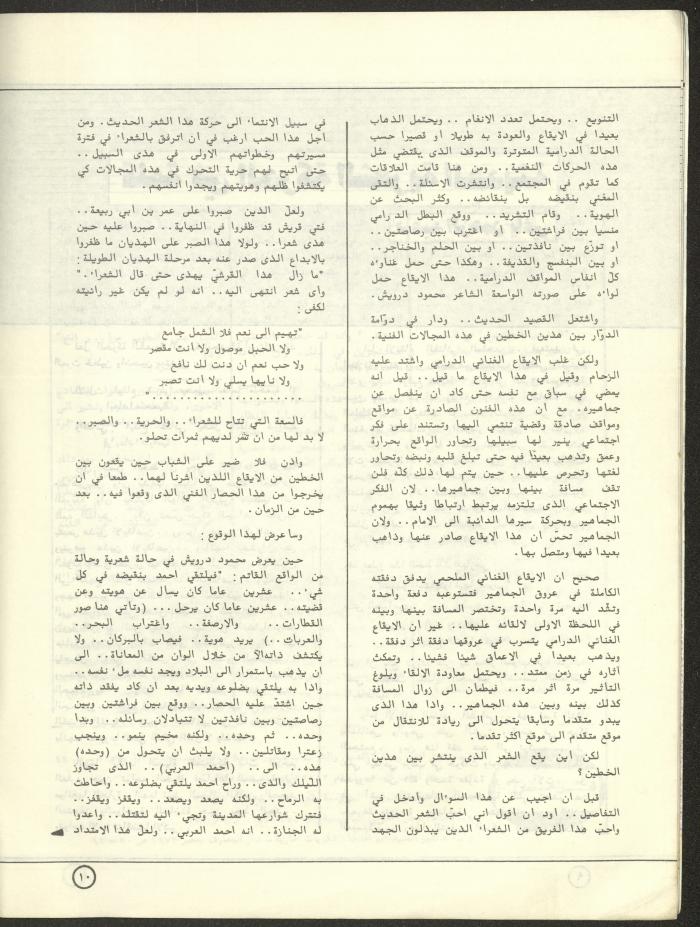 التنويع .. ويحتمل تعدد الانغام .. ويحتمل الذهاب
بعيدا في الايقاع والعودة به طويلا او قصيرا حسب
الحالة الدرامية المتوترة والموقف الذى يقتضي مثل
هذه الحركات النغمية.. ومن هنا قامت العلاقات
كما تقوم في المجتمع.. وانتشرت الاسئلة.. والتقى
المغني بنقيضه بل بنقائضه.. وكثر البحث عن
الهوية.. وقام التشريد.. ووقع البطل الدرامي
منسيا بين فراشتين.. او اغترب بين رصاصتين..
او توزّع بين نافذتين.. او بين الحلم والخناجر..
او بين البنفسج والقذيفة.. وهكذا حتى حمل غناوءه
كلّ انفاس المواقف الدرامية.. هذا الايقاع حمل
لواءه على صورته الواسعة الشاعر محمود درويش.
واشتعل القصيد الحديث.. ودار في دوّامة
الدوّار بين هذين الخطين في هذه المجالات الفنية.
ولكن غلب الايقاع الغنائي الدرامي واشتد عليه
الزحام وقيل في هذا الايقاع ما قيل.. قيل انه
يمضي في سباق مع نفسه حتى كاد ان ينفصل عن
جماهيره. مع ان هذه الفنون الصادرة عن مواقع
ومواقف صادقة وقضية تنتمي اليها وتستند على فكر
اجتماعي ينير لها سبيلها وتحاور الواقع بحرارة
وعمق وتذهب بعيدًا فيه حتى تبلغ قلبه ونبضه وتحاور
لغتها وتحرص عليها.. حين يتم لها ذلك كلّه فلن
تقف مسافة بينها وبين جماهيرها.. لان الفكر
الاجتماعي الذى تلتزمه يرتبط ارتباطا وثيقا بهموم
الجماهير وبحركة سيرها الدائبة الى الامام.. ولان
الجماهير تحسّ ان هذا الايقاع صادر عنها وذاهب
بعيدا فيها ومتصل بها.
صحيح ان الايقاع الغنائي الملحمي يدفق دفقته
الكاملة في عروق الجماهير فتستوعبه دفعة واحدة
وتشّد اليه مرة واحدة وتختصر المسافة بينها وبينه
في اللحظة الاولى لالقائه عليها.. غير ان الايقاع
الغنائي الدرامي يتسرب في عروقها دفقة اثر دفقة..
ويذهب بعيدا في الاعماق شيئا فشيئا.. وتمكث
آثاره في زمن ممتد.. ويحتمل معاودة الالقاء وبلوغ
التأثير مرة اثر مرة.. فيطمأن الى زوال المسافة
كذلك بينه وبين هذه الجماهير.. واذا هذا الذى
يبدو متقدما وسابقا يتحول الى ريادة للانتقال من
موقع متقدم الى موقع اكثر تقدما.
لكن أين يقع الشعر الذى ينتشر بين هذين
الخطين؟
قبل ان اجيب عن هذا السوءال وأدخل في
التفاصيل.. أود ان أقول اني احبّ الشعر الحديث
واحبّ هذا الفريق من الشعراء الذين يبذلون الجهد
في سبيل الانتماء الى حركة هذا الشعر الحديث. ومن
اجل هذا الحب ارغب في ان اترفق بالشعراء في فترة
مسيرتهم وخطواتهم الاولى في هذى السبيل..
حتى اتيح لهم حرية التحرك في هذه المجالات كي
يكتشفوا ظلهم وهويتهم ويجدوا أنفسهم.
ولعلّ الذين صبروا على عمر بن أبي ربيعة..
فتي قريش قد ظفروا في النهاية.. صبروا عليه حين
هذى شعرا.. ولولا هذا الصبر على الهذيان ما ظفروا
بالابداع الذى صدر عنه بعد مرحلة الهذيان الطويلة:
"ما زال هذا القرشيّ يهذى حتى قال الشعراء."
وأى شعر انتهى اليه.. انه لو لم يكن غير رائيته
لكفى:
"تهيم الى نعم فلا الشمل جامع
ولا الحبل موصول ولا أنت مقصر
ولا حب نعم ان دنت لك نافع
ولا نايها يسلي ولا أنت تصبر
......................"
فالسعة التي تتاح للشعراء.. والحرية.. والصبر..
لا بد لها من ان تثمر لديهم ثمرات تحلو.
واذن فلا ضير على الشباب حين يقعون بين
الخطين من الايقاع اللذين اشرنا لهما.. طمعا في ان
يخرجوا من هذا الحصار الفني الذى وقعوا فيه.. بعد
حين من الزمان.
وسأعرض لهذا الوقوع:
حين يعرض محمود درويش في حالة شعرية وحالة
من الواقع القائم: "فيلتقي احمد بنقيضه في كل
شيء.. عشرين عاما كان يسأل عن هويته وعن
قضيته.. عشرين عاما كان يرحل... (وتأتي هنا صور
القطارات.. والارصفة.. واغتراب البحر..
والعربات..) يريد هوية.. فيصاب بالبركان.. ولا
يكتشف ذاته الاّ من خلال الوان من المعاناة.. الى
ان يذهب باستمرار الى البلاد ويجد نفسه ملء نفسه..
واذا به يلتقي بضلوعه ويديه بعد ان كاد يفقد ذاته
حين اشتدّ عليه الحصار.. ووقع بين فراشتين وبين
رصاصتين وبين نافذتين لا تتبادلان رسائله.. وبدأ
وحده.. ثم وحده.. ولكنه مخيم ينمو.. وينجب
زعترا ومقاتلين.. ولا يلبث ان يتحول من (وحده)
هذه.. الى.. (أحمد العربيّ).. الذى تجاوز
اللّيلك والذى.. وراح احمد يلتقي بضلوعه.. وأحاطت
به الرماح.. ولكنه يصعد ويصعد.. ويقفز ويقفز..
فتترك شوارعها المدينة وتجيء اليه لتقتله.. واعدوا
له الجنازة.. انه احمد العربي.. ولعلّ هذا الامتداد
١٠